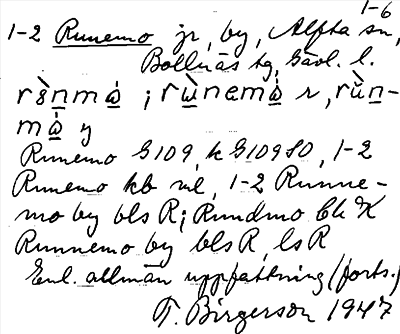 1-6
1-2 Runemo jr, by, Alfta sn,
Bollnäs tg, Gävl. l.
rs̀nmά ; rùnemά r, rǜn-
mά y
Runemo G109, k G109SO, 1-2
Runemo kb nl, 1-2 Runne-
mo by bls R; Rundmo Ch K
Runnemo by bls R, ls R
Enl. allmän uppfattning (forts.)
T. Birgerson 1947